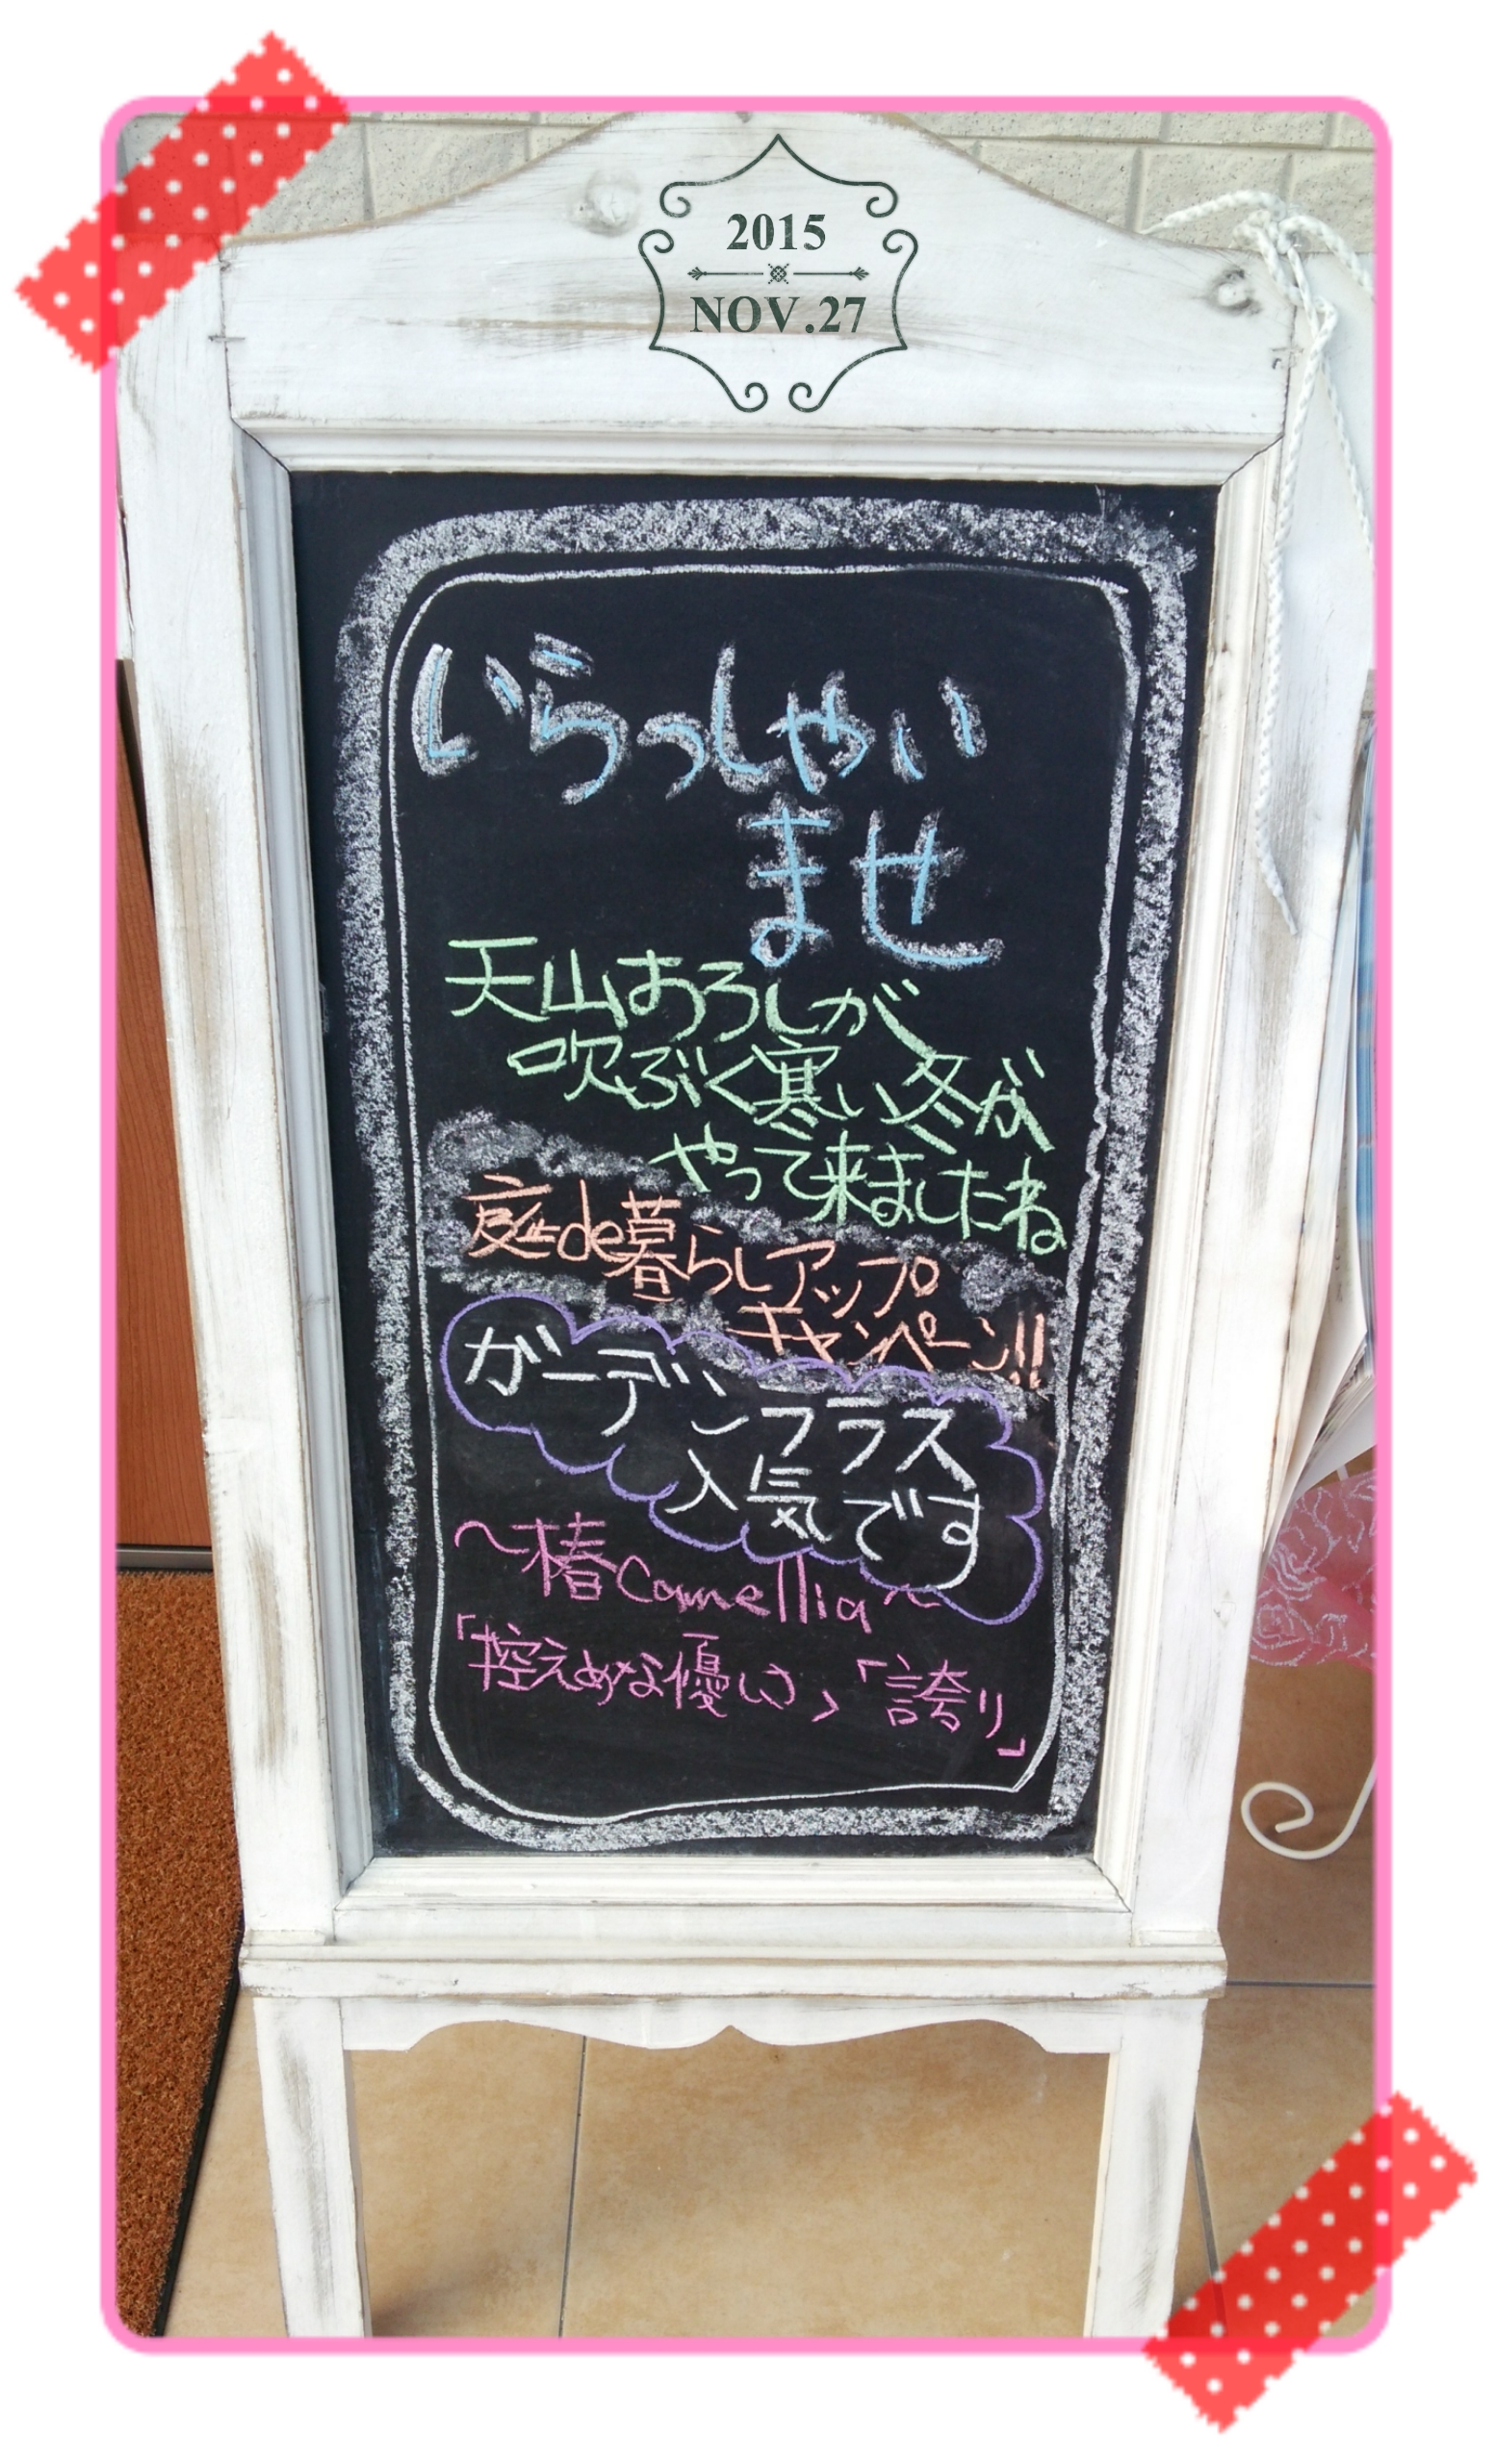 2015
NOV.27
いらっしゃい
ませ
天山おろしが
吹ぶく寒い冬が
やって来ましたね
庭de暮らしアップ
キャンペーン!!
ガーデンプラス
人気です
～椿Camellia～
「控えめな優しさ」「誇り」